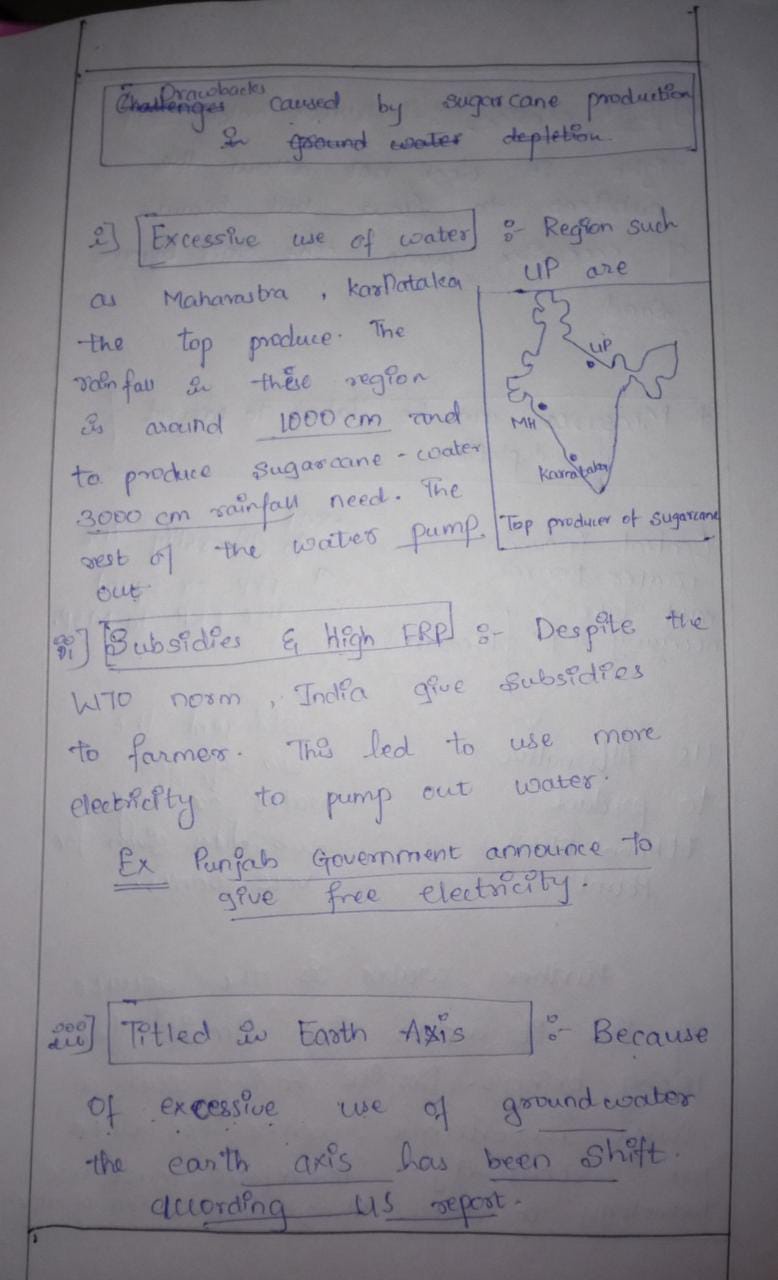 Drawbacks
Challenges caused by sugarcane production
in ground water depletion.
i] Excessive use of water :- Region such
as Maharastra, Karnataka UP are
the top produce. The
rainfall in these region
is around 1000 cm and
to produce sugarcane - water
3000 cm rainfall need. The
rest of the water pump
out
UP
MH
Karnataka
Top producer of sugarcane
ii] Subsidies & High FRP :- Despite the
WTO norm, India give subsidies
to farmer. This led to use more
electricity to pump out water.
Ex Punjab Government announce to
give free electricity.
iii] Titled in Earth Axis :- Because
Of excessive use of groundwater
the earth axis has been shift.
according US report.